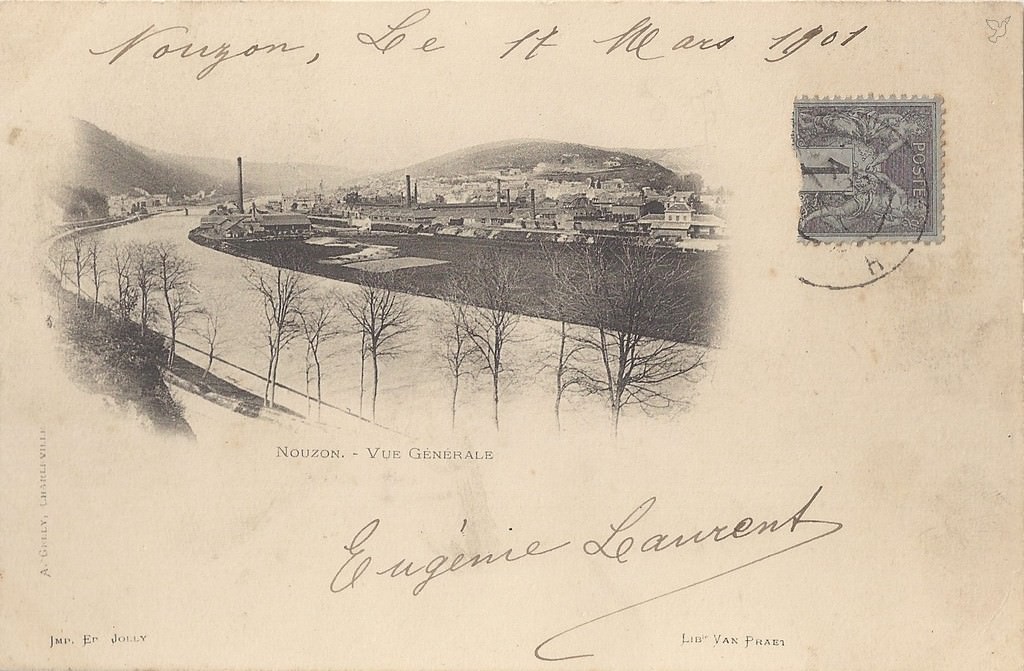 Nouzon, Le 17 Mars 1901
POSTE
1
4
NOUZON. - VUE GÉNÉRALE
A. GELLY, CHARLEVILLE
Eugénie Laurent
IMP. ED. JOLLY
LIBie VAN PRAET